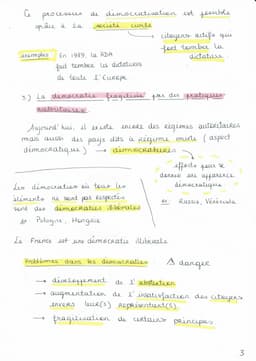 Ce processus de démocratisation est possible
grâce à la société civile
↳ citoyens actifs qui
font tomber la
dictature
exemples En 1989, la RDA
fait tomber les dictatures
de toute l'Europe
3) La démocratie fragilisée par des pratiques
autoritaires
Aujourd'hui, il existe encore des régimes autoritaires
mais aussi des pays dits à régime mixte (aspect
démocratique) → démocratures
efforts pour se
donner une apparence
démocratique
ex Russie, Vénézuela
Les démocraties où tous les
éléments ne sont pas respectés
sont des démocraties illibérales
ex Pologne, Hongrie
La France est une démocratie illibérale
Problèmes dans les démocraties ⚠ danger
→ développement de l'abstention
→ augmentation de l'insatisfaction des citoyens
envers leur(s) représentant(s)
→ fragilisation de certains principes
3